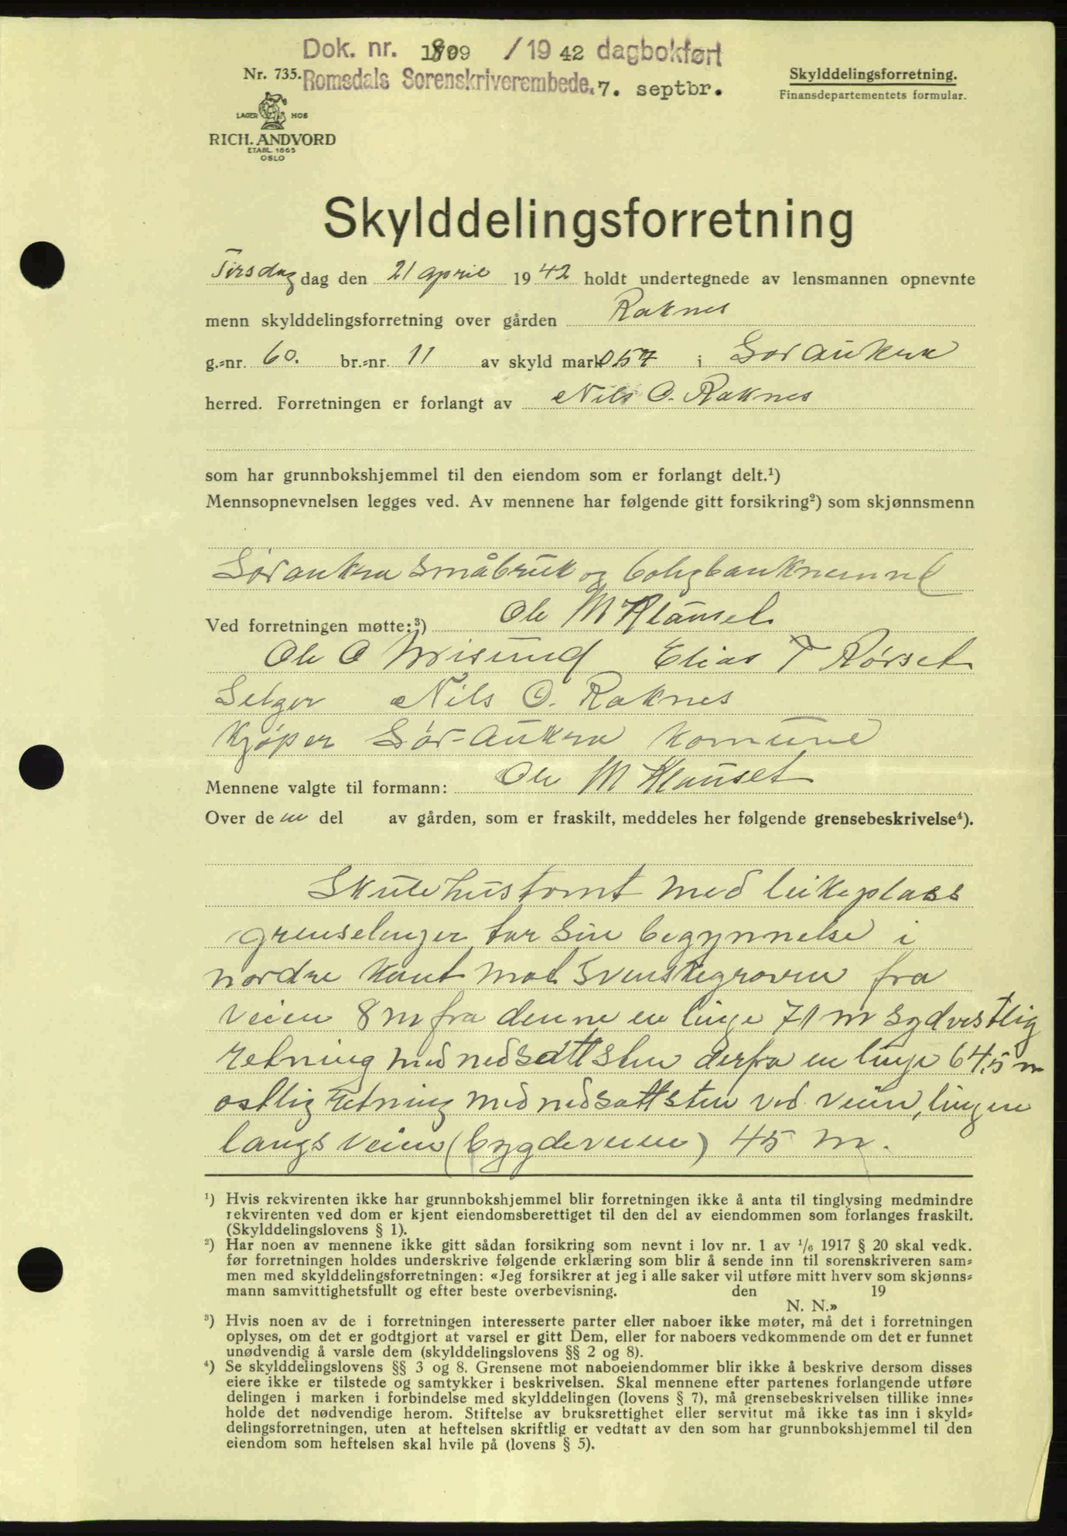 Dok. nr. 1809 /1942 dagbokført
Nr. 735. Romsdals Sorenskriverembede. 7. septbr.
Skylddelingsforretning.
Finansdepartementets formular.
LAGER HOS
RICH. ANDVORD
ETABL. 1865
OSLO
Skylddelingsforretning
Tirsdag dag den 21 april 1942 holdt undertegnede av lensmannen opnevnte
menn skylddelingsforretning over gården Raknes
g.-nr. 60. br.-nr. 11 av skyld mark 0 57 i Sør Aukra
herred. Forretningen er forlangt av Nils O. Raknes
som har grunnbokshjemmel til den eiendom som er forlangt delt.¹)
Mennsopnevnelsen legges ved. Av mennene har følgende gitt forsikring²) som skjønnsmenn
Søraukra Småbruk og boligbanknemnd
Ved forretningen møtte:³) Ole M Klauset
Ole O Misund Elias T Rørset
Selger Nils O. Raknes
Kjøper Sør-Aukra Komune
Mennene valgte til formann: Ole M Klauset
Over de en del av gården, som er fraskilt, meddeles her følgende grensebeskrivelse⁴).
Skulehustomt med leikeplass
grenselinger tar sin begynnelse i
nordre kant mot Svenskegroven fra
veien 8 m fra denne en linje 71 m sydvestlig
retning med nedsatt sten derfra en linje 64,5 m
ostlig retning med nedsatt sten ved veien, linjen
langs veien (bygdeveien) 45 m.
¹) Hvis rekvirenten ikke har grunnbokshjemmel blir forretningen ikke å anta til tinglysing medmindre
rekvirenten ved dom er kjent eiendomsberettiget til den del av eiendommen som forlanges fraskilt.
(Skylddelingslovens § 1).
²) Har noen av mennene ikke gitt sådan forsikring som nevnt i lov nr. 1 av ¹/₆ 1917 § 20 skal vedk.
før forretningen holdes underskrive følgende erklæring som blir å sende inn til sorenskriveren sam-
men med skylddelingsforretningen: «Jeg forsikrer at jeg i alle saker vil utføre mitt hverv som skjønns-
mann samvittighetsfullt og efter beste overbevisning. den 19
N. N.»
³) Hvis noen av de i forretningen interesserte parter eller naboer ikke møter, må det i forretningen
oplyses, om det er godtgjort at varsel er gitt Dem, eller for naboers vedkommende om det er funnet
unødvendig å varsle dem (skylddelingslovens §§ 2 og 8).
⁴) Se skylddelingslovens §§ 3 og 8. Grensene mot naboeiendommer blir ikke å beskrive dersom disses
eiere ikke er tilstede og samtykker i beskrivelsen. Skal mennene efter partenes forlangende utføre
delingen i marken i forbindelse med skylddelingen (lovens § 7), må grensebeskrivelsen tillike inne-
holde det nødvendige herom. Stiftelse av bruksrettighet eller servitut må ikke tas inn i skyld-
delingsforretningen, uten at heftelsen skriftlig er vedtatt av den som har grunnbokshjemmel til den
eiendom som heftelsen skal hvile på (lovens § 5).